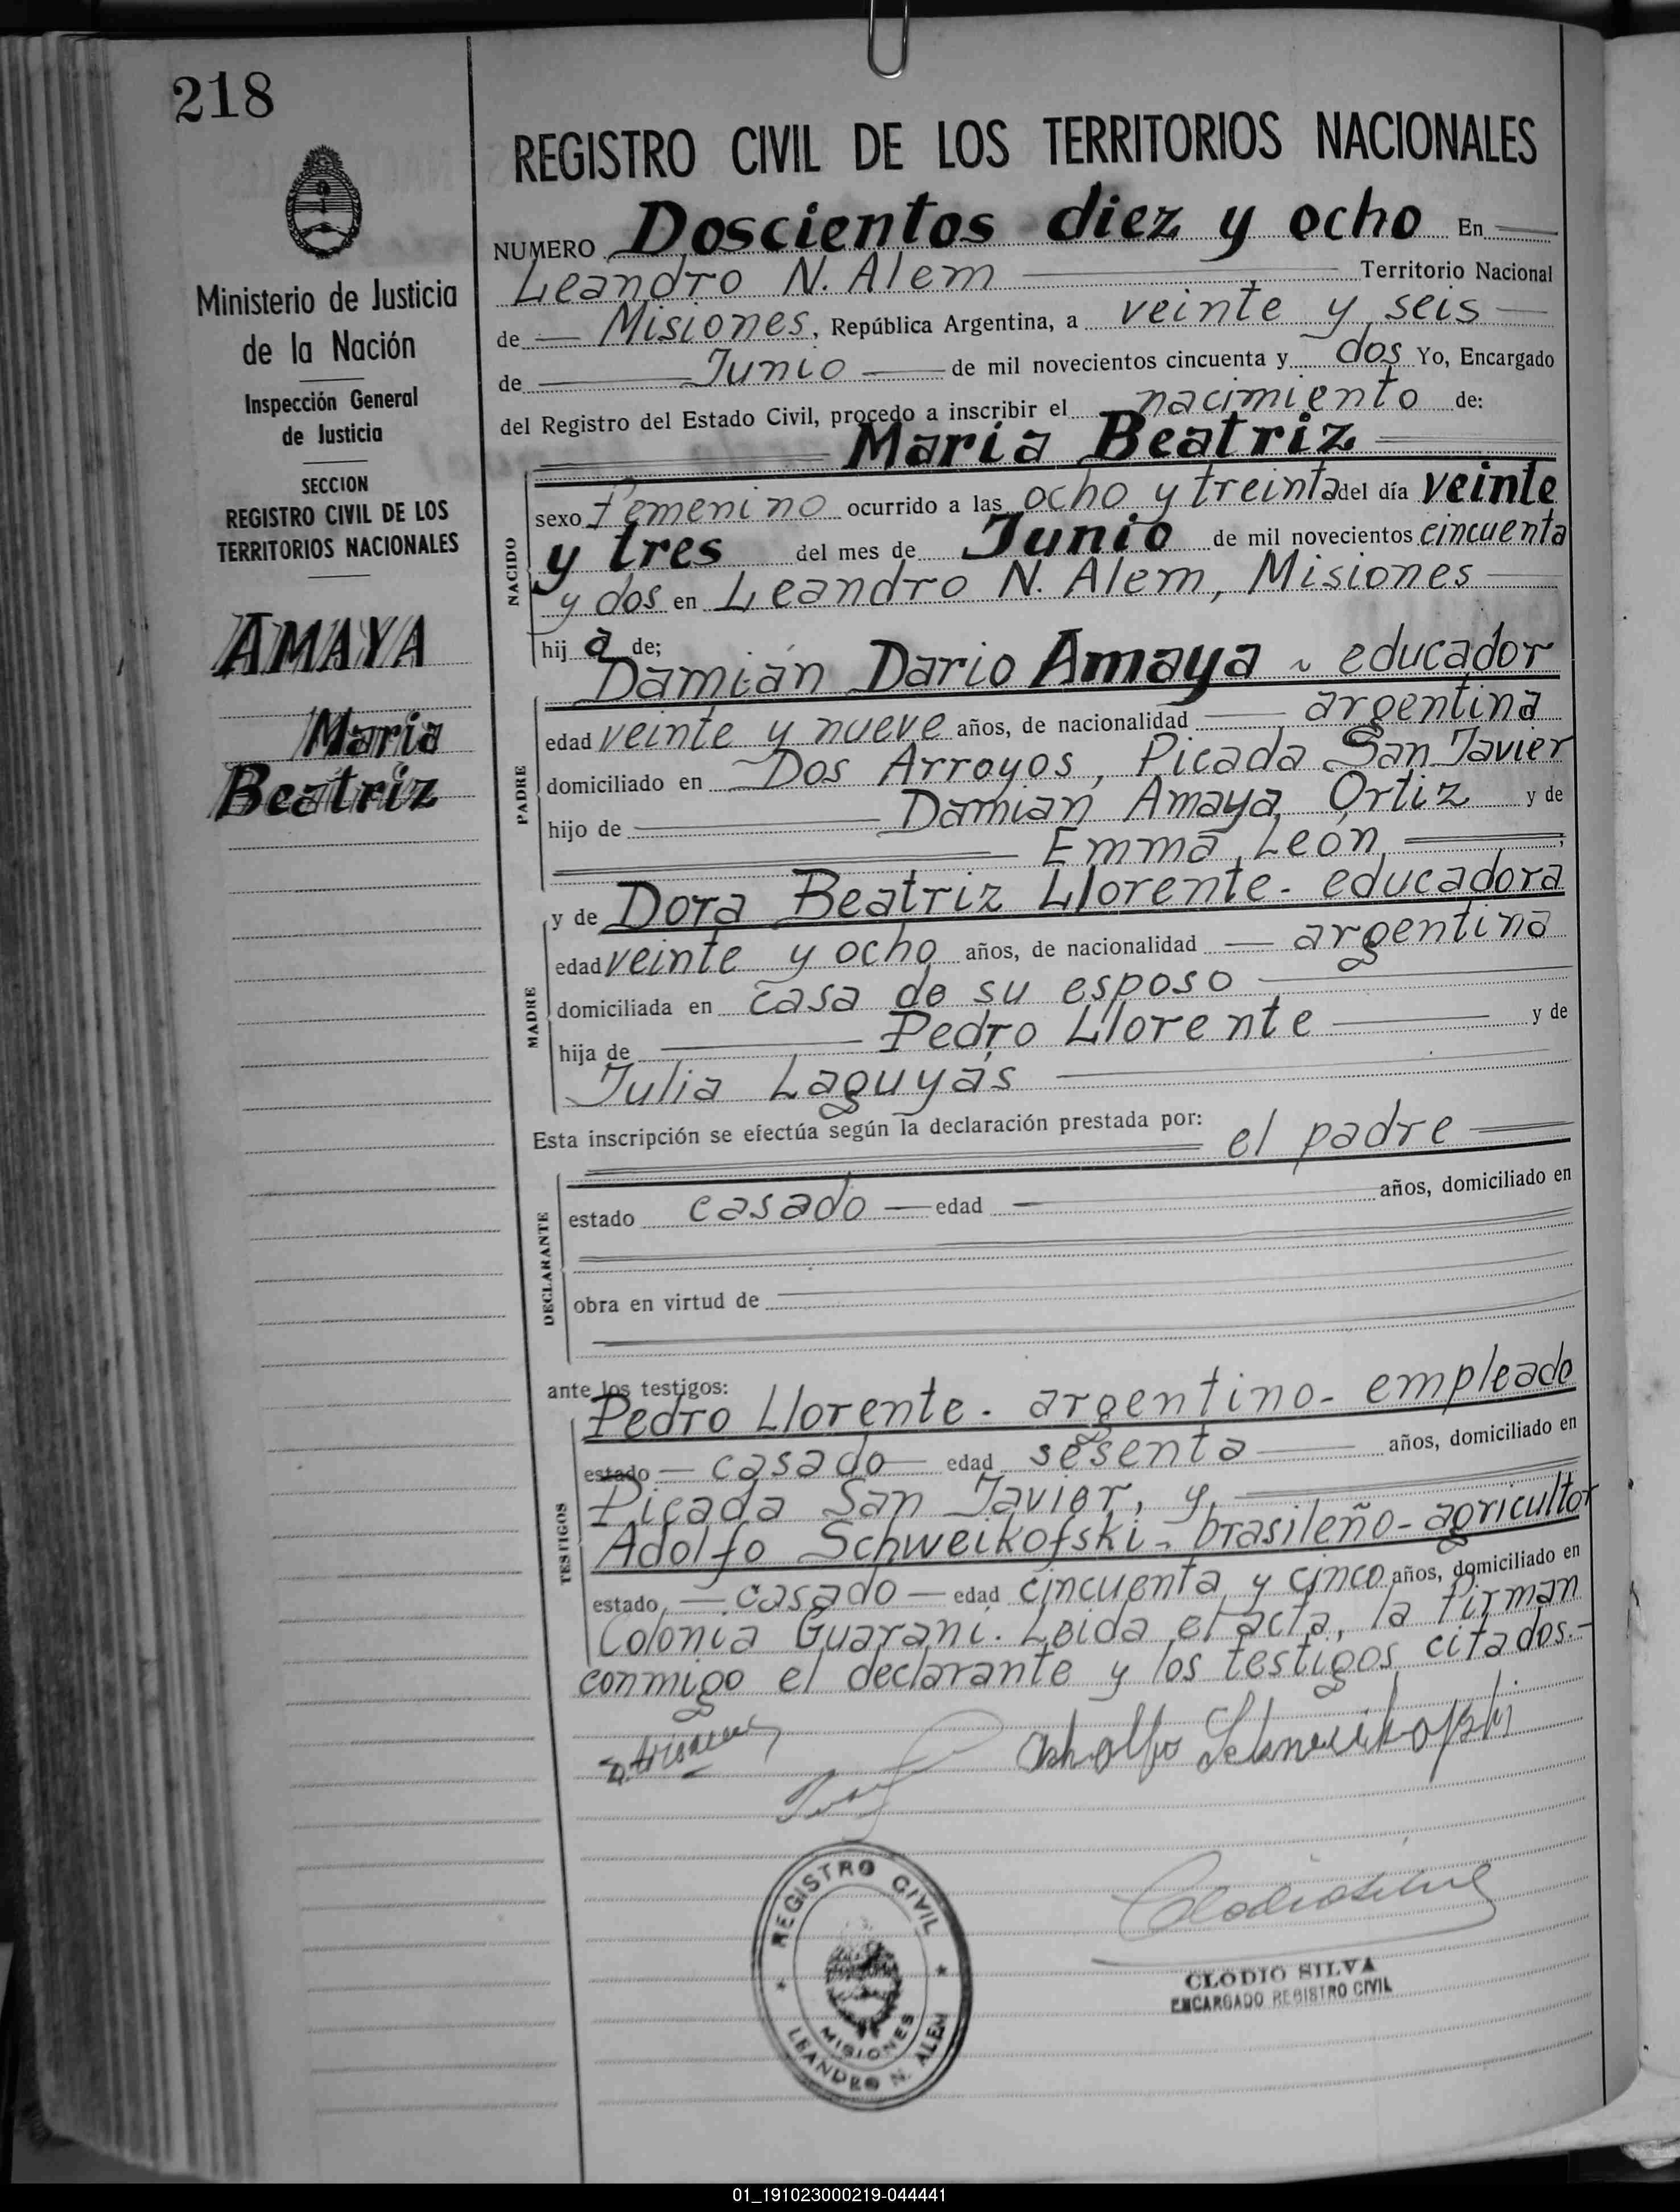 218
Ministerio de Justicia
de la Nación
Inspección General
de Justicia
SECCION
REGISTRO CIVIL DE LOS
TERRITORIOS NACIONALES
AMAYA
Maria
Beatriz
REGISTRO CIVIL DE LOS TERRITORIOS NACIONALES
NUMERO Doscientos diez y ocho En
Leandro N. Alem Territorio Nacional
de Misiones, República Argentina, a veinte y seis
de Junio de mil novecientos cincuenta y dos Yo, Encargado
del Registro del Estado Civil, procedo a inscribir el nacimiento de:
Maria Beatriz
NACIDO
sexo Femenino ocurrido a las ocho y treinta del día veinte
y tres del mes de Junio de mil novecientos cincuenta
y dos en Leandro N. Alem, Misiones
hij a de;
Damián Dario Amaya - educador
PADRE
edad veinte y nueve años, de nacionalidad argentina
domiciliado en Dos Arroyos, Picada San Javier
hijo de Damian Amaya Ortiz y de
Emma León ;
y de Dora Beatriz Llorente - educadora
MADRE
edad veinte y ocho años, de nacionalidad argentina
domiciliada en casa de su esposo
hija de Pedro Llorente y de
Julia Laguyás
Esta inscripción se efectúa según la declaración prestada por: el padre
DECLARANTE
estado casado edad años, domiciliado en
obra en virtud de
ante los testigos:
Pedro Llorente - argentino - empleado
TESTIGOS
estado casado edad sesenta años, domiciliado en
Picada San Javier, y,
Adolfo Schweikofski - brasileño - agricultor
estado casado edad cincuenta y cinco años, domiciliado en
Colonia Guaraní. Leida el acta, la firman
conmigo el declarante y los testigos citados.-
REGISTRO CIVIL
MISIONES
LEANDRO N. ALEM
CLODIO SILVA
ENCARGADO REGISTRO CIVIL
01_191023000219-044441